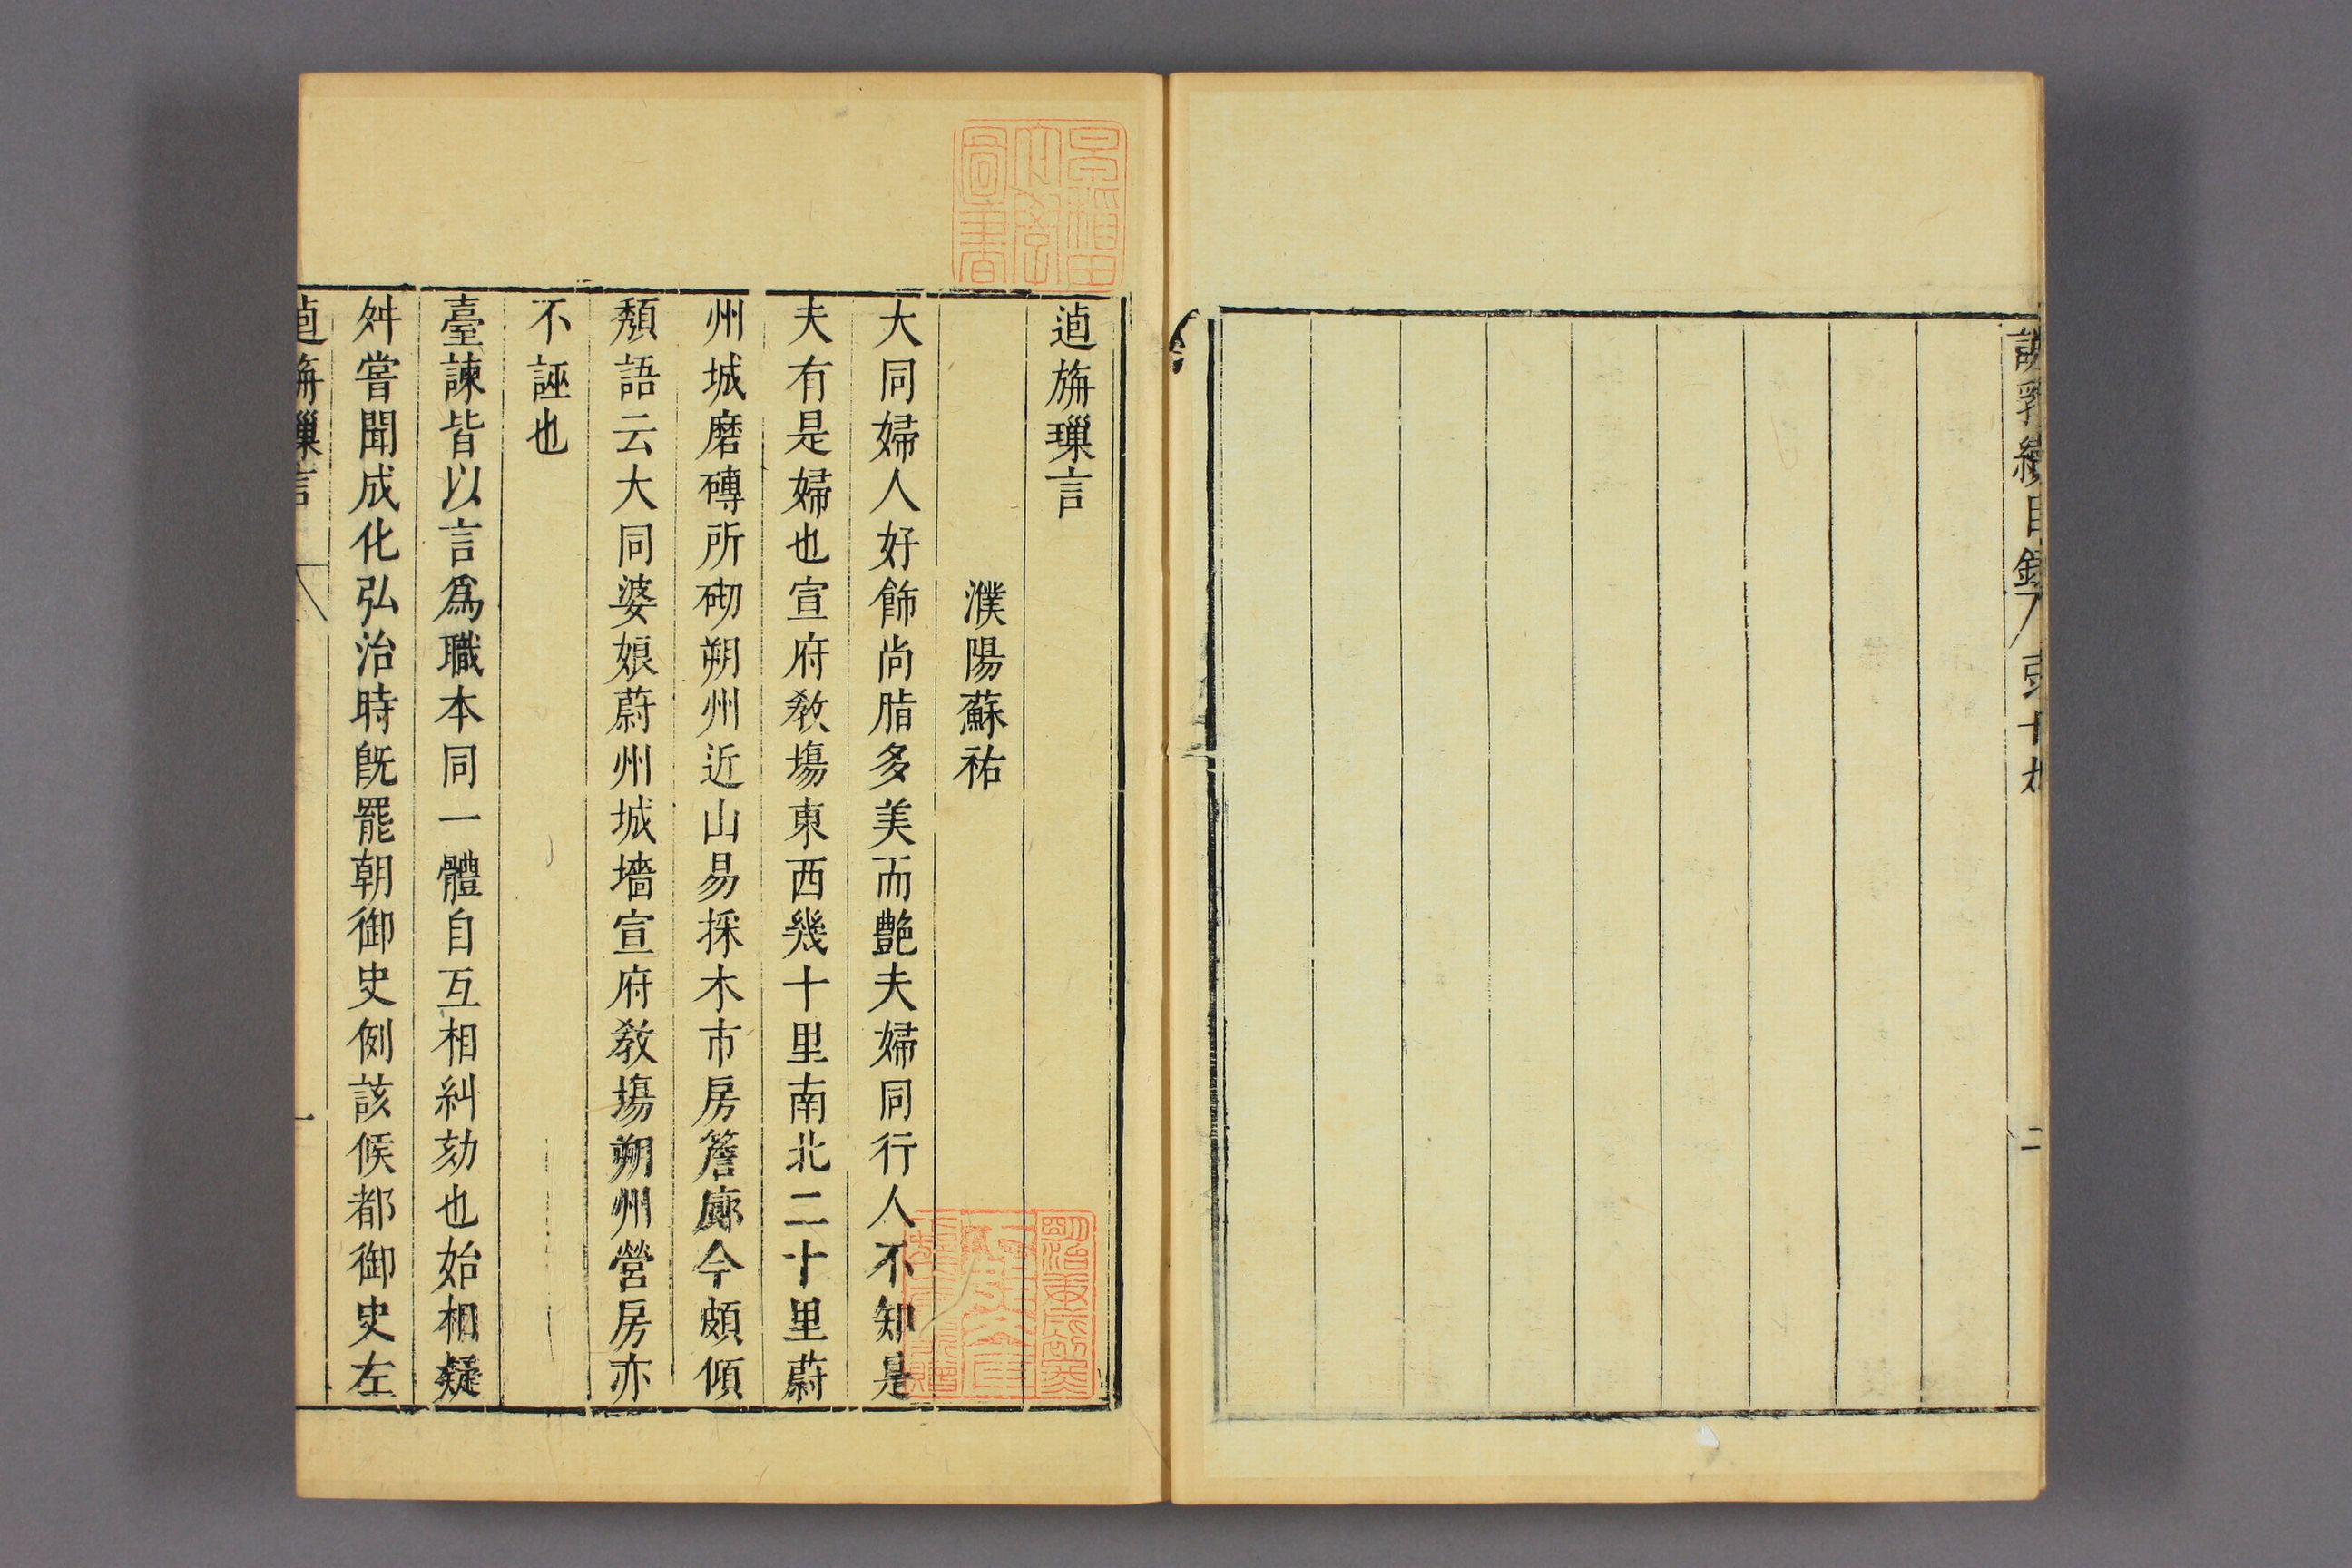 說郛續目錄 弓十九
二
逌旃璅言
濮陽蘇祐
大同婦人好飾尚脂多美而艷夫婦同行人不知是
夫有是婦也宣府教塲東西幾十里南北二十里蔚
州城磨磚所砌朔州近山易採木市房簷廊今頗傾
頹語云大同婆娘蔚州城墻宣府教塲朔州營房亦
不誣也
臺諫皆以言爲職本同一體自互相糾劾也始相疑
舛嘗聞成化弘治時旣罷朝御史例該候都御史左
逌旃璅言
一
早稻田大學圖書